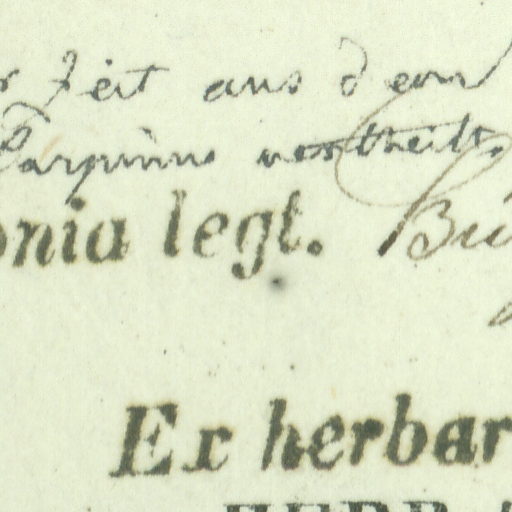 r Zeit aus dem
Carpinus vertheilt.
onia legt. Bü
Ex herbar
HERB